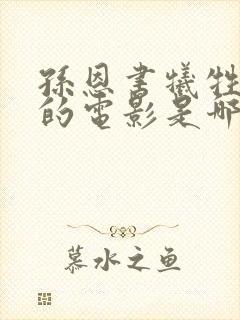 孫恩書犧牲
的電影是哪
慕水之魚